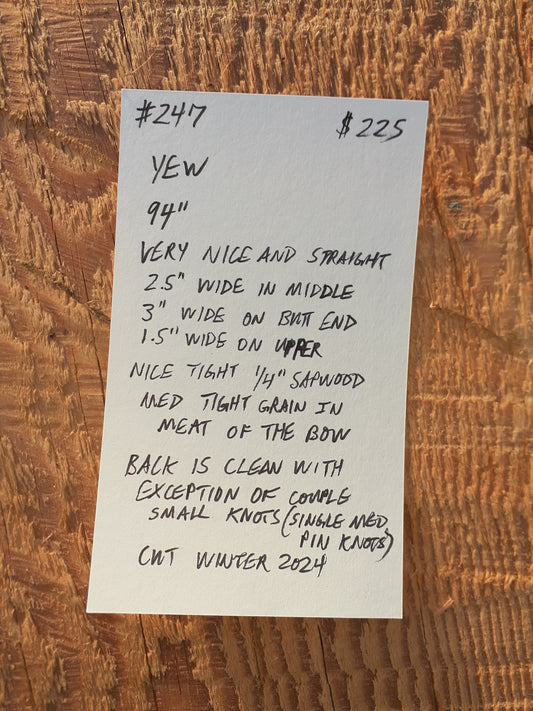 #247 $225
YEW
94"
VERY NICE AND STRAIGHT
2.5" WIDE IN MIDDLE
3" WIDE ON BUTT END
1.5" WIDE ON UPPER
NICE TIGHT 1/4" SAPWOOD
MED TIGHT GRAIN IN
MEAT OF THE BOW
BACK IS CLEAN WITH
EXCEPTION OF COUPLE
SMALL KNOTS (SINGLE MED
PIN KNOTS)
CUT WINTER 2024